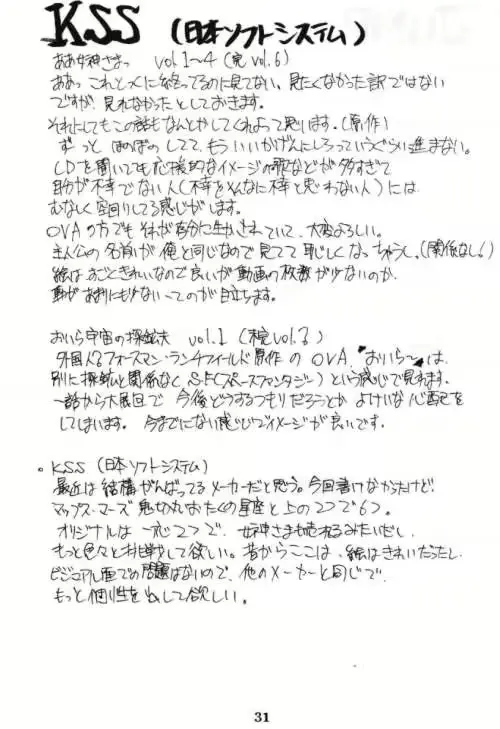 KSS (日本ソフトシステム)
ああ女神さまっ vol.1〜4 (完 vol.6)
ああっ これとっくに終ってるのに見てない、見たくなかった訳ではない
ですが、見れなかったとしておきます。
それにしてもこの話もなんとかしてくれよって思います。(原作)
ずーっと ほのぼのしてて、もういいかげんにしろっていうぐらい進まない。
CDを聞いても応援的なイメージの歌などが多すぎて
自分が不幸でない人(不幸をそんなに不幸と思わない人)には
むなしく空回りしてる感じがします。
OVAの方でもそれが存分に生かされていて、大変よろしい。
主人公の名前が俺と同じなので見てて恥じしくなっちゃうし、(関係なし!)
絵はすごくきれいなので良いが動画の枚数が少ないのか、
動きがあまりにも少ないってのが目立ちます。
おいら宇宙の探鉱夫 vol.1 (未完 vol.3)
外国人るフォースマン・ランチフィールド原作の OVA、おいら〜は、
別に探鉱と関係なく S.F(スペースファンタジー)という感じで見れます。
一話から大展回で 今後どうするつもりだろうとか よけいな心配を
してしまいます。 今までにない感じでイメージが良いです。
。KSS (日本ソフトシステム)
最近は結構がんばってるメーカーだと思う。今回書けなかったけど!
マップス・マーズ 鬼切丸 おたくの星座と上の2つで6つ。
オリジナルは一応2つで、女神さまも売れるみたいだし、
もっと色々とお挑戦して欲しい。昔からここは、絵はきれいだったし、
ビジュアル面での問題はないので、他のメーカーと同じで、
もっと個性を出して欲しい。
31